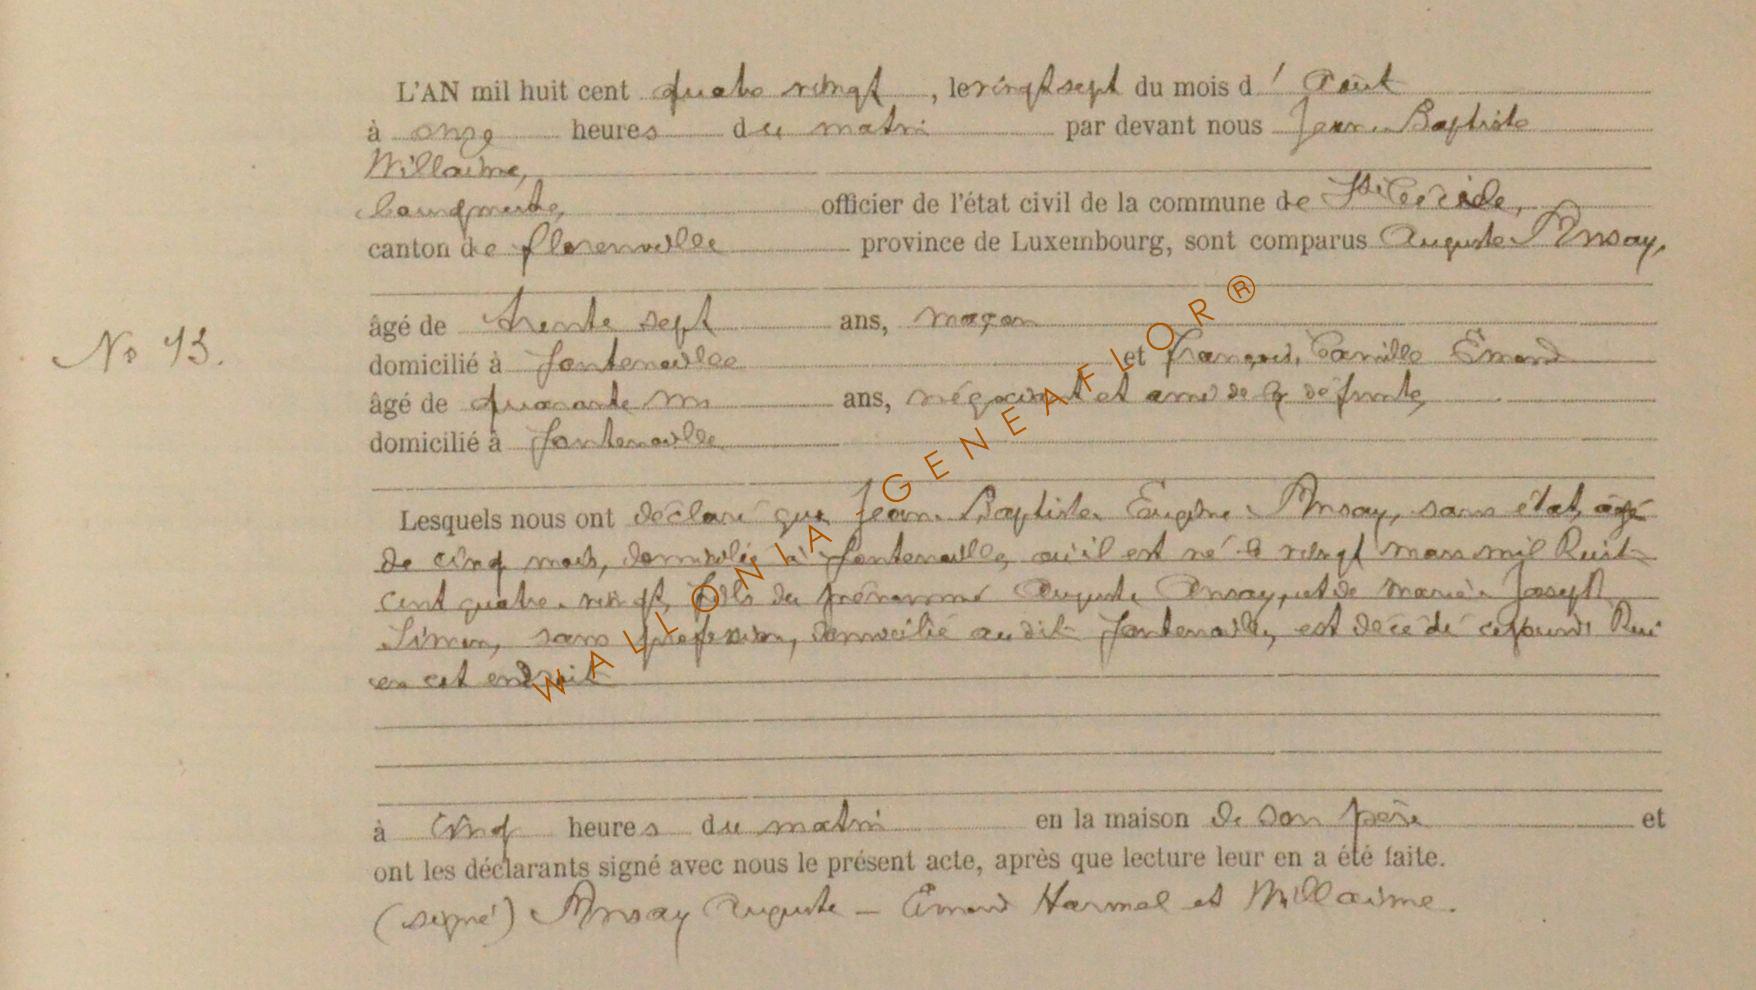 L'AN mil huit cent quatre vingt, le vingt sept du mois d' Août
à onze heures du matin par devant nous Jean-Baptiste
Willaime,
bourgmestre, officier de l'état civil de la commune de Ste Cécile,
canton de florenville province de Luxembourg, sont comparus Auguste Ansay,
âgé de trente sept ans, maçon
No 13. domicilié à fontenoille et françois, Camille Émond
âgé de quarante un ans, négociant et ami de la défunte,
domicilié à fontenoille
Lesquels nous ont déclaré que Jean-Baptiste Eugène Ansay, sans état, âgé
de cinq mois, domicilié à fontenoille, qu'il est né le vingt mars mil huit
cent quatre-vingt, fils du prénommé Auguste Ansay, et de marie-Joseph
Simon, sans profession, domicilié audit fontenoille, est décédé cejourd'hui
en cet endroit
à cinq heures du matin en la maison de son père et
ont les déclarants signé avec nous le présent acte, après que lecture leur en a été faite.
(signé) Ansay Auguste — Émond Harmel et Willaime.
WALLONIA-GENEAFLOR®